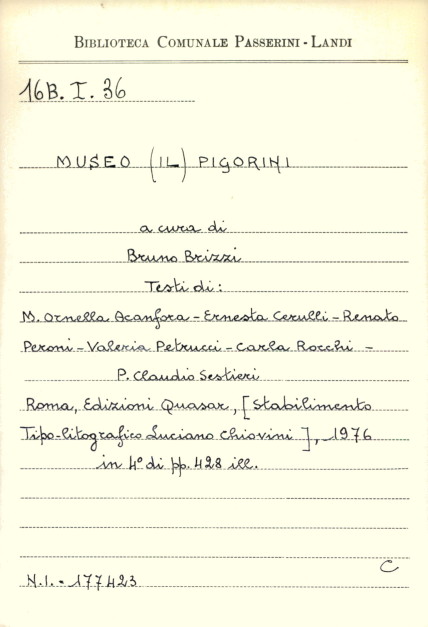 BIBLIOTECA COMUNALE PASSERINI - LANDI
16B. I. 36
MUSEO (IL) PIGORINI
a cura di
Bruno Brizzi
Testi di:
M. Ornella Acanfora - Ernesta Cerulli - Renato
Peroni - Valeria Petrucci - Carla Rocchi -
P. Claudio Sestieri
Roma, Edizioni Quasar, [Stabilimento
Tipo-litografico Luciano Chiovini], 1976
in 4° di pp. 428 ill.
C
N.I. - 177423